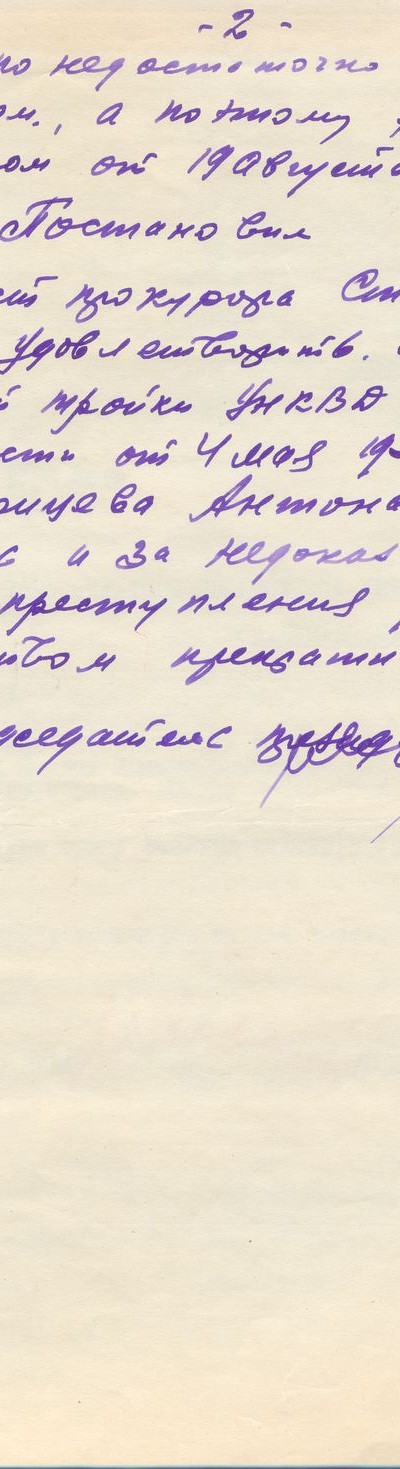 - 2 -
но недостаточно
ом., а потому
ом от 19 августа
Постановил
ст прокурора Ст
удовлетворить.
й тройки УНКВД
сти от 4 мая 19
рицева Антона
с и за недоказ
преступления
твом прекрати
дседатель